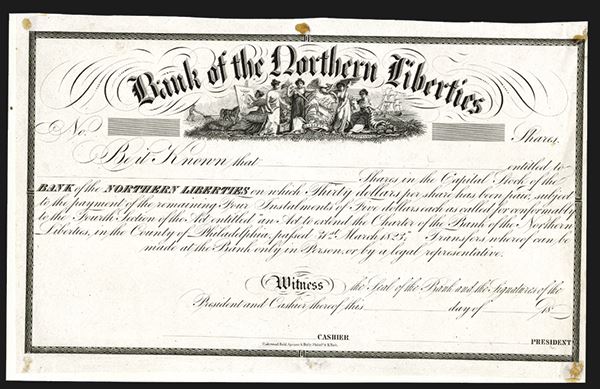 Bank of the Northern Liberties
No. Shares.
Be it Known that entitled to
Shares in the Capital Stock of the
BANK of the NORTHERN LIBERTIES on which Thirty dollars per share has been paid, subject
to the payment of the remaining Four Instalments of Five dollars each as called for conformably
to the Fourth Section of the Act entitled "an Act to extend the Charter of the Bank of the Northern
Liberties, in the County of Philadelphia, passed March 1825." Transfers whereof can be
made at the Bank only in Person, or by a legal representative.
Witness the Seal of the Bank and the Signatures of the
President and Cashier thereof this day of 18
CASHIER PRESIDENT
Underwood Bald Spencer & Hufty Philad.ª & N.York.